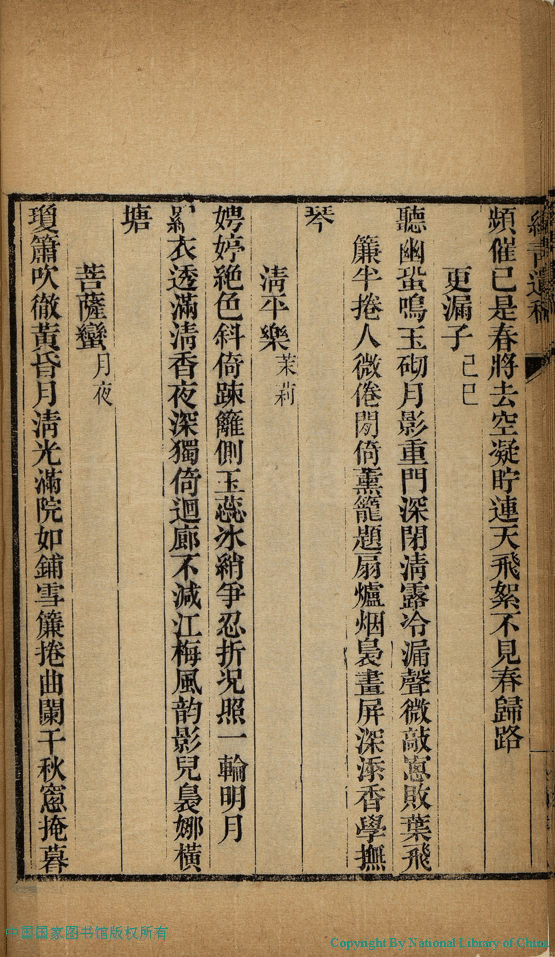 頻催已是春將去空凝貯連天飛絮不見春歸路
更漏子己巳
聽幽蛩鳴玉砌月影重門深閉清露冷漏聲微敲窻敗葉飛
簾半捲人微倦閒倚薰籠題扇爐烟裊畫屏深添香學撫
琴
清平樂茉莉
娉婷絶色斜倚踈籬側玉蕊冰綃爭忍折況照一輪明月
衣透滿清香夜深獨倚迴廊不減江梅風韵影兒裊娜橫
塘
菩薩蠻月夜
瓊簫吹徹黃昏月清光滿院如鋪雪簾捲曲闌干秋窻掩暮
中国国家图书馆版权所有
Copyright By National Library of China